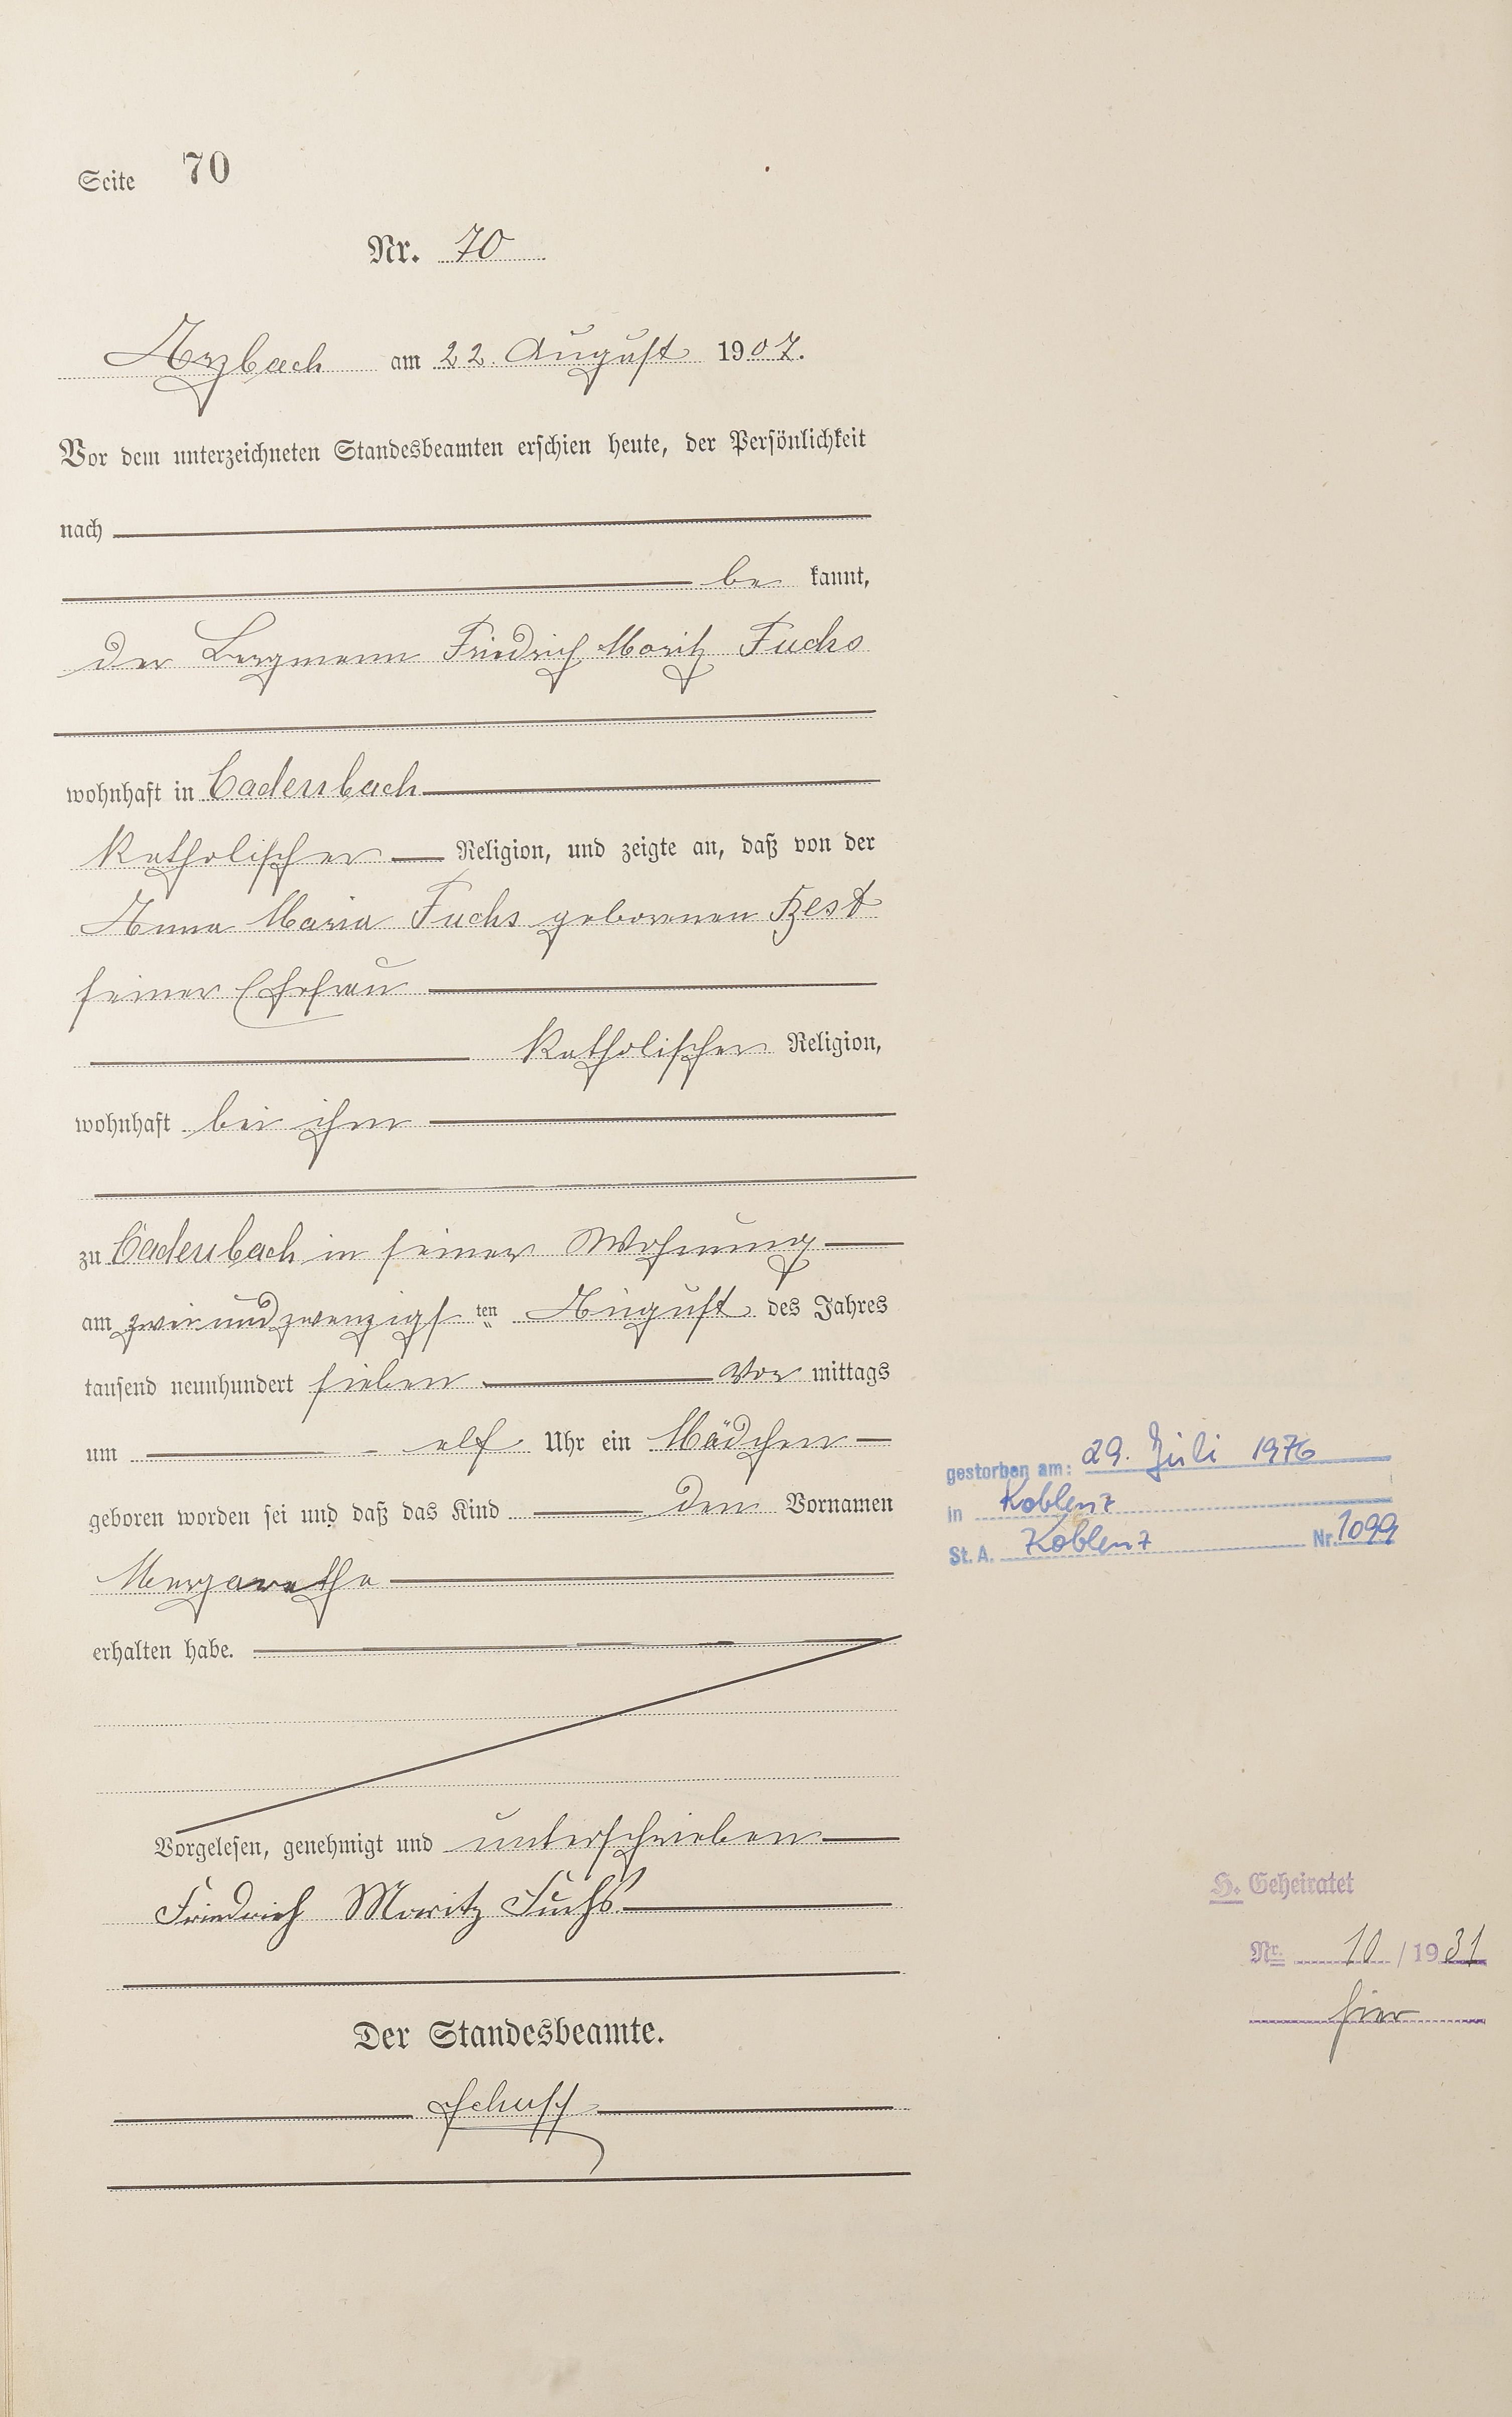 Seite 70
Nr. 70
Arzbach am 22. August 1907.
Vor dem unterzeichneten Standesbeamten erschien heute, der Persönlichkeit
nach
be kannt,
der Bergmann Friedrich Moritz Fuchs
wohnhaft in Cadenbach
katholischer Religion, und zeigte an, daß von der
Anna Maria Fuchs geborenen
seiner Ehefrau
katholischer Religion,
wohnhaft bei ihm
zu Cadenbach in seiner Wohnung
am zweiundzwanzigsten August des Jahres
tausend neunhundert sieben Vor mittags
um elf Uhr ein Mädchen
geboren worden sei und daß das Kind den Vornamen
Margarethe
erhalten habe.
Vorgelesen, genehmigt und unterschrieben
Friedrich Moritz Fuchs
Der Standesbeamte.
gestorben am: 29. Juli 1976
in Koblenz
St. A. Koblenz Nr. 1099
H. Geheiratet
Nr. 10 / 1931
hier